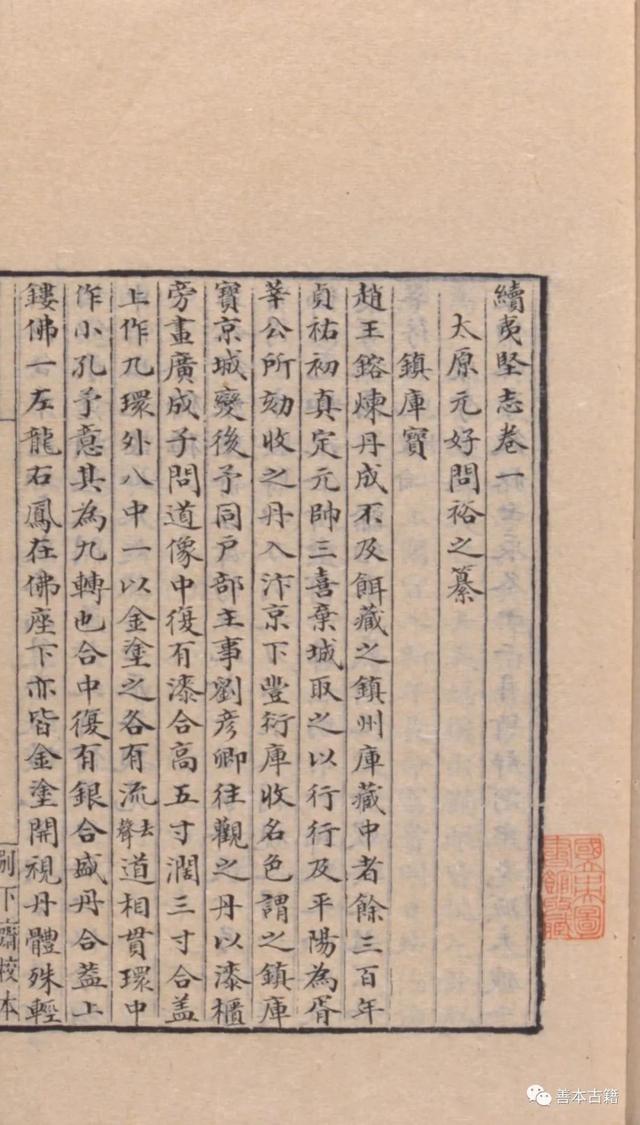 續夷堅志卷一
太原元好問裕之纂
鎮庫寶
趙王鎔煉丹成不及餌藏之鎮州庫藏中者餘三百年
貞祐初真定元帥三喜棄城取之以行行及平陽為胥
莘公所劾收之丹入汴京下豐衍庫收名色謂之鎮庫
寶京城變後予同戶部主事劉彥卿往觀之丹以漆櫃
旁畫廣成子問道像中復有漆合高五寸濶三寸合盖
上作九環外八中一以金塗之各有流去聲道相貫環中
作小孔予意其為九轉也合中復有銀合盛丹合葢上
鏤佛一左龍右鳳在佛座下亦皆金塗開視丹體殊輕
別下齋校本
國立中央圖書館收藏
善本古籍